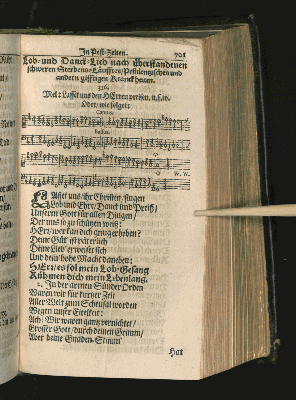 In Pest-Zeiten. 701
Lob- und Danck-Lied nach überstandenen
schweren Sterbens-Läufften/Pestilentzischen und
andern gifftigen Kranckheiten.
316.
Mel: Lasset uns den HErren preisen, u.s.w.
Oder/ wie folget:
Cantus.
Bassus.
LAsset uns/ ihr Christen/ singen
Lob und Ehre/ Danck und Preiß/
Unserm Gott für allen Dingen/
Der uns so zu schützen weiß:
HErr/ wer kan dich gnug erheben?
Deine Güt ist väterlich
Deine Lieb' erweiset sich
Und dein' hohe Macht daneben:
HErr/ es sol mein Lob-Gesang
Rühmen dich mein Lebenlang.
2. In der armen Sünder Orden
Waren wir für kurtzer Zeit
Aller Welt zum Scheusal worden
Wegen unser Eitelkeit:
Ach! Wir waren gantz vernichtet/
Grosser Gott/ durch deinen Grimm/
Aber deine Gnaden-Stimm'
Hat